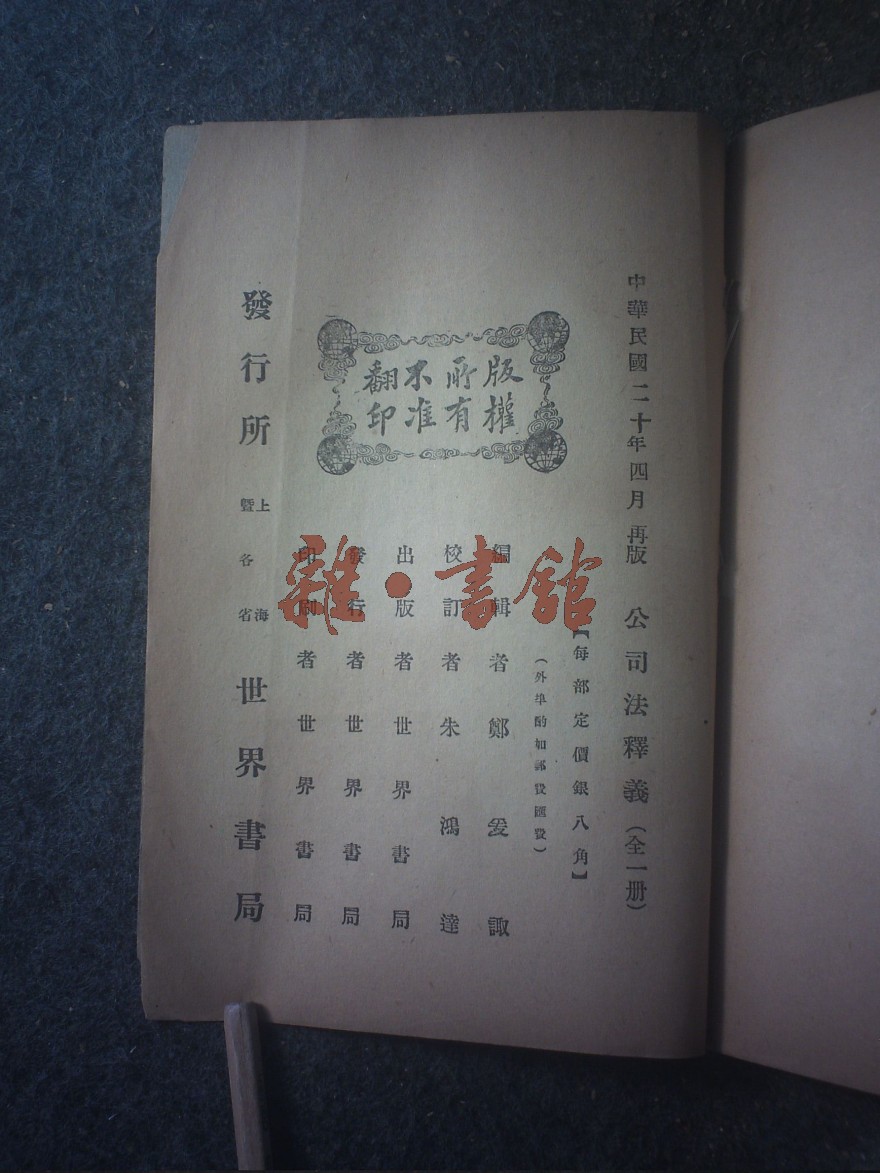 中華民國二十年四月再版
公司法釋義（全一册）
【每部定價銀八角】
（外埠酌加郵費匯費）
版權
所有
不准
翻印
編輯者鄭爰諏
校訂者朱鴻達
出版者世界書局
發行者世界書局
印刷者世界書局
發行所
上海
暨各省
世界書局
雜·書館